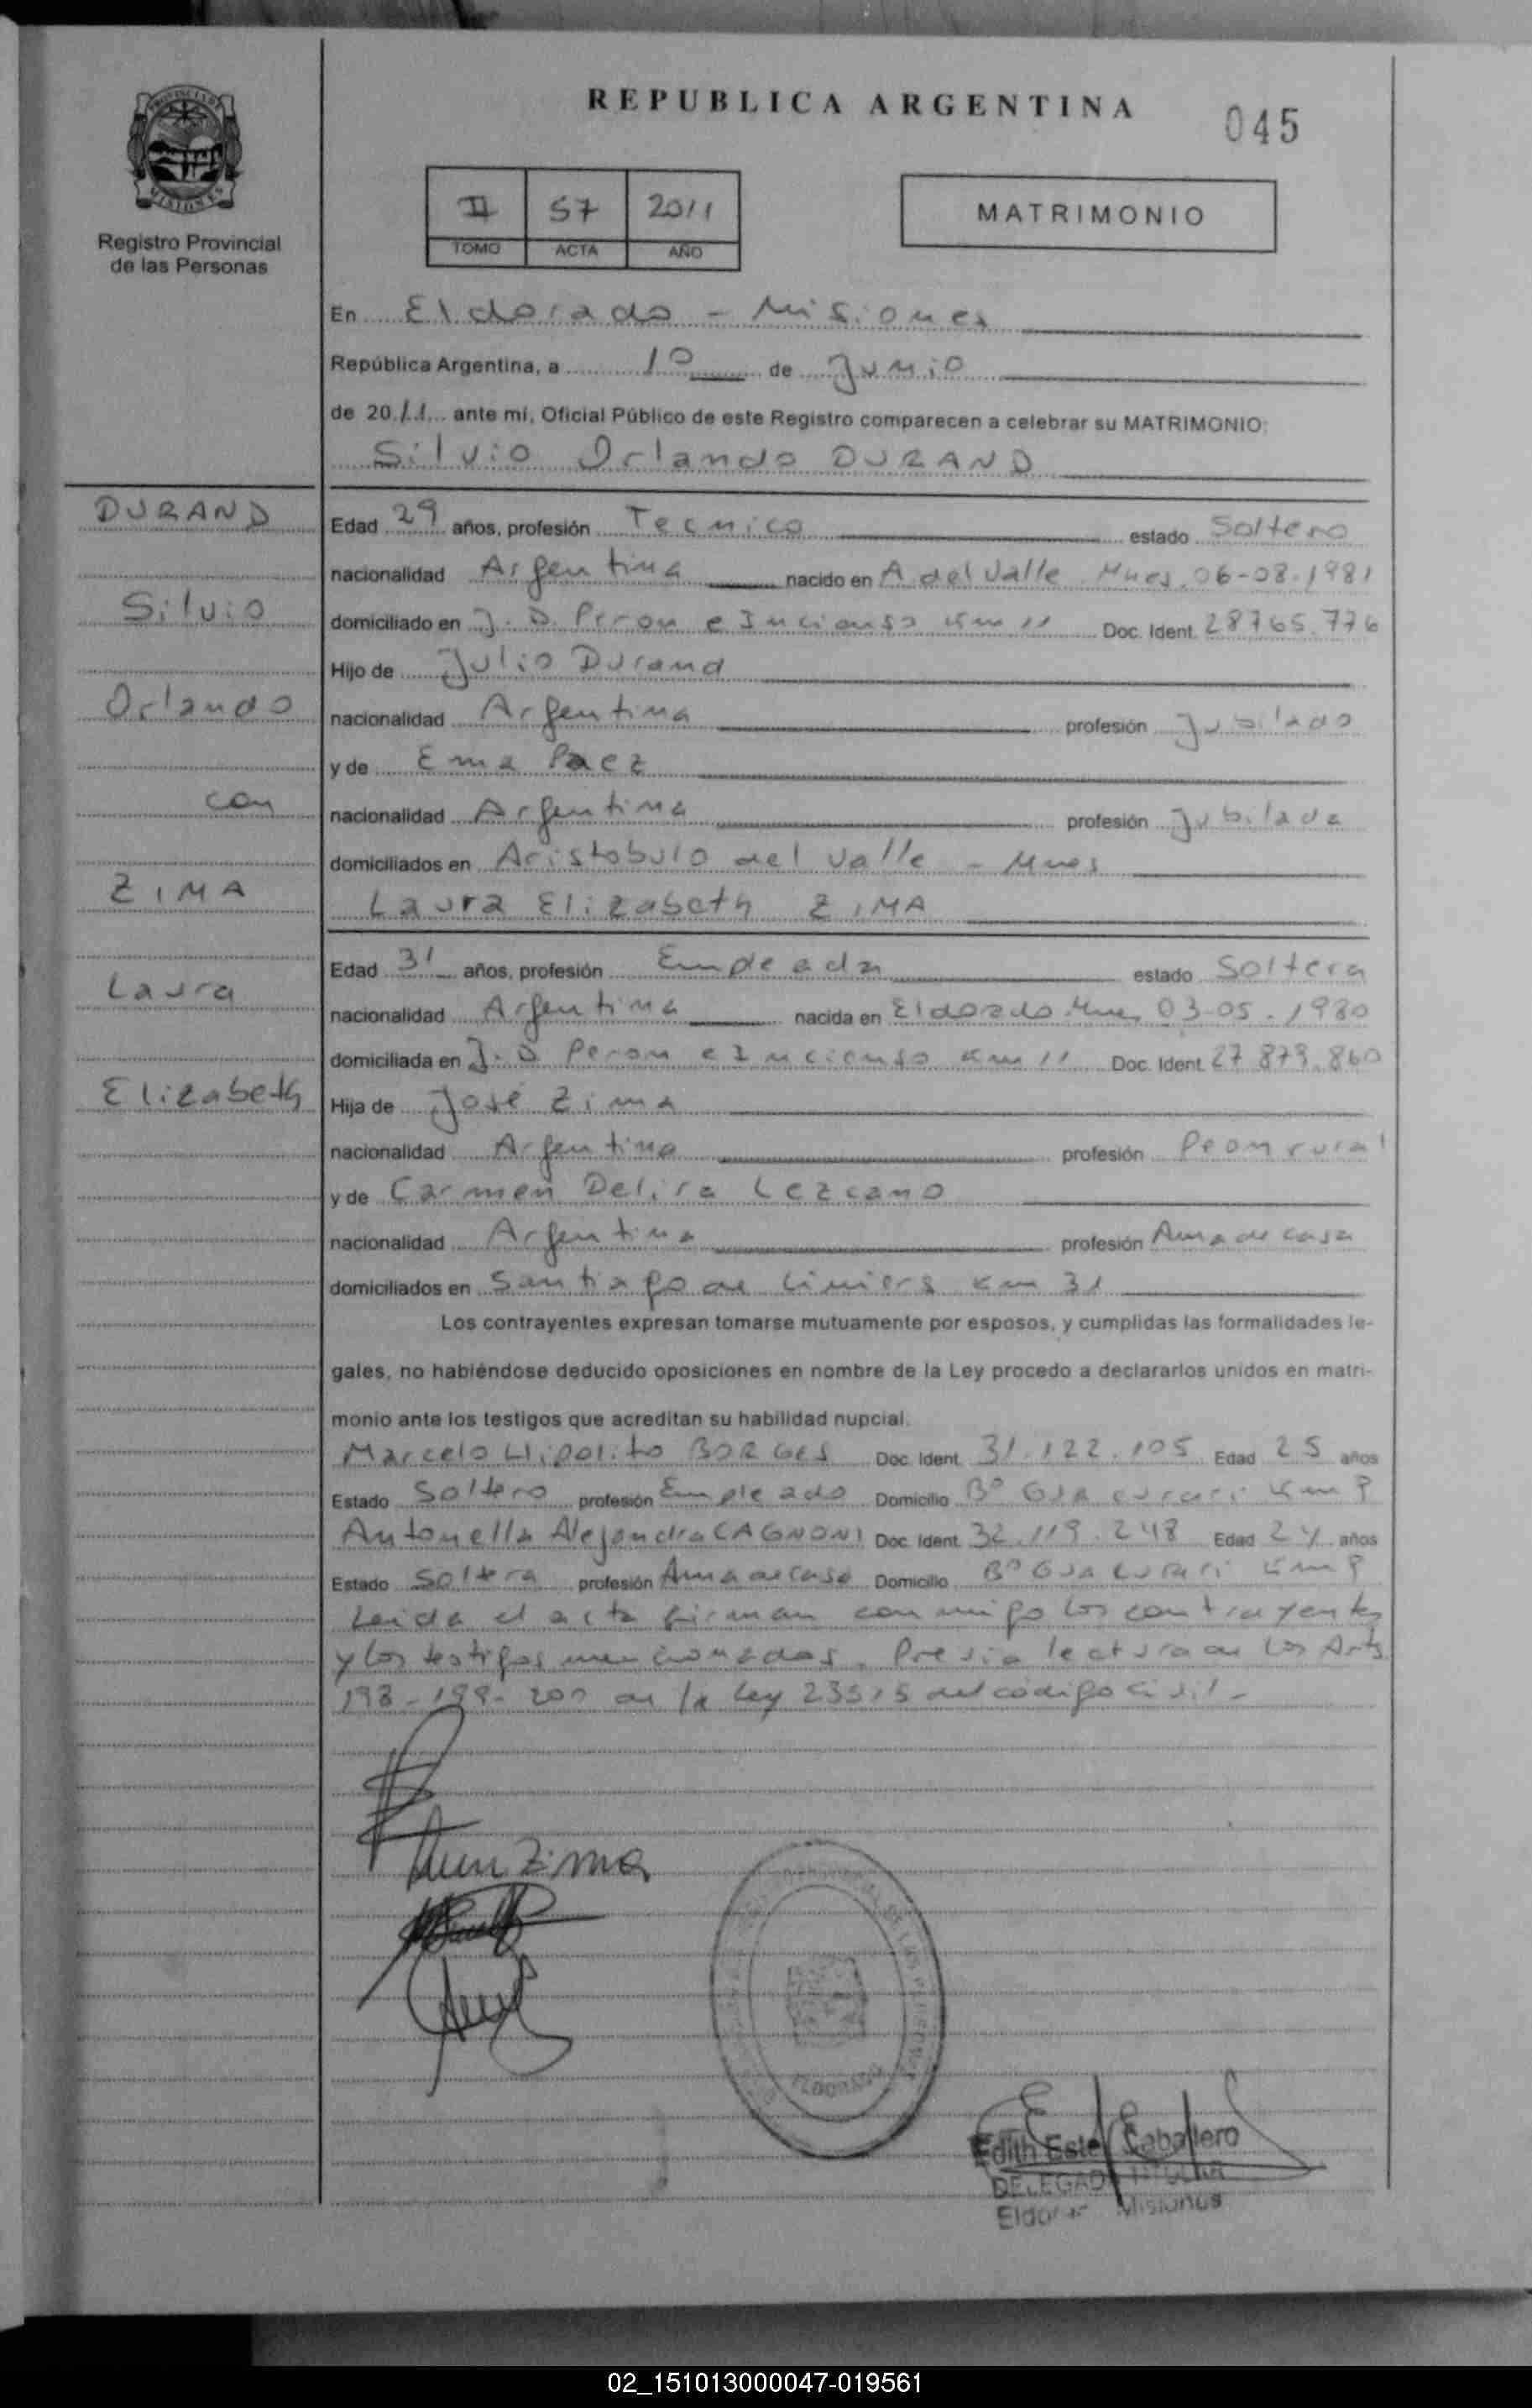 REPUBLICA ARGENTINA
045
PROVINCIA DE
MISIONES
Registro Provincial
de las Personas
II 57 2011
TOMO ACTA AÑO
MATRIMONIO
En Eldorado - Misiones
República Argentina, a 10 de Junio
de 2011 ante mí, Oficial Público de este Registro comparecen a celebrar su MATRIMONIO:
Silvio Orlando DURAND
DURAND
Silvio
Orlando
con
ZIMA
Laura
Elizabeth
Edad 29 años, profesión Tecnico estado Soltero
nacionalidad Argentina nacido en A. del Valle Mnes. 06-08-1981
domiciliado en J. D. Peron e Incienso Km 11 Doc. Ident. 28765.776
Hijo de Julio Durand
nacionalidad Argentina profesión Jubilado
y de Ema Paez
nacionalidad Argentina profesión Jubilada
domiciliados en Aristobulo del Valle - Mnes
Laura Elizabeth ZIMA
Edad 31 años, profesión Empleada estado Soltera
nacionalidad Argentina nacida en Eldorado Mnes 03-05-1980
domiciliada en J. D. Peron e Incienso Km 11 Doc. Ident. 27.879.860
Hija de José Zima
nacionalidad Argentina profesión Peon rural
y de Carmen Delira Lezcano
nacionalidad Argentina profesión Ama de casa
domiciliados en Santiago de Liniers Km 31
Los contrayentes expresan tomarse mutuamente por esposos, y cumplidas las formalidades le-
gales, no habiéndose deducido oposiciones en nombre de la Ley procedo a declararlos unidos en matri-
monio ante los testigos que acreditan su habilidad nupcial.
Marcelo Hipolito BORGES Doc. Ident. 31.122.105 Edad 25 años
Estado Soltero profesión Empleado Domicilio Bº Guacurari Km 9
Antonella Alejandra CAGNONI Doc. Ident. 32.119.248 Edad 24 años
Estado Soltera profesión Ama de casa Domicilio Bº Guacurari Km 9
Leida el acta firman conmigo los contrayentes
y los testigos mencionados. Previa lectura de los Arts
198-199-200 de la Ley 23515 del código civil-
Zima
ELDORADO
Edith Ester Caballero
DELEGADA TITULAR
Eldorado Misiones
02_151013000047-019561